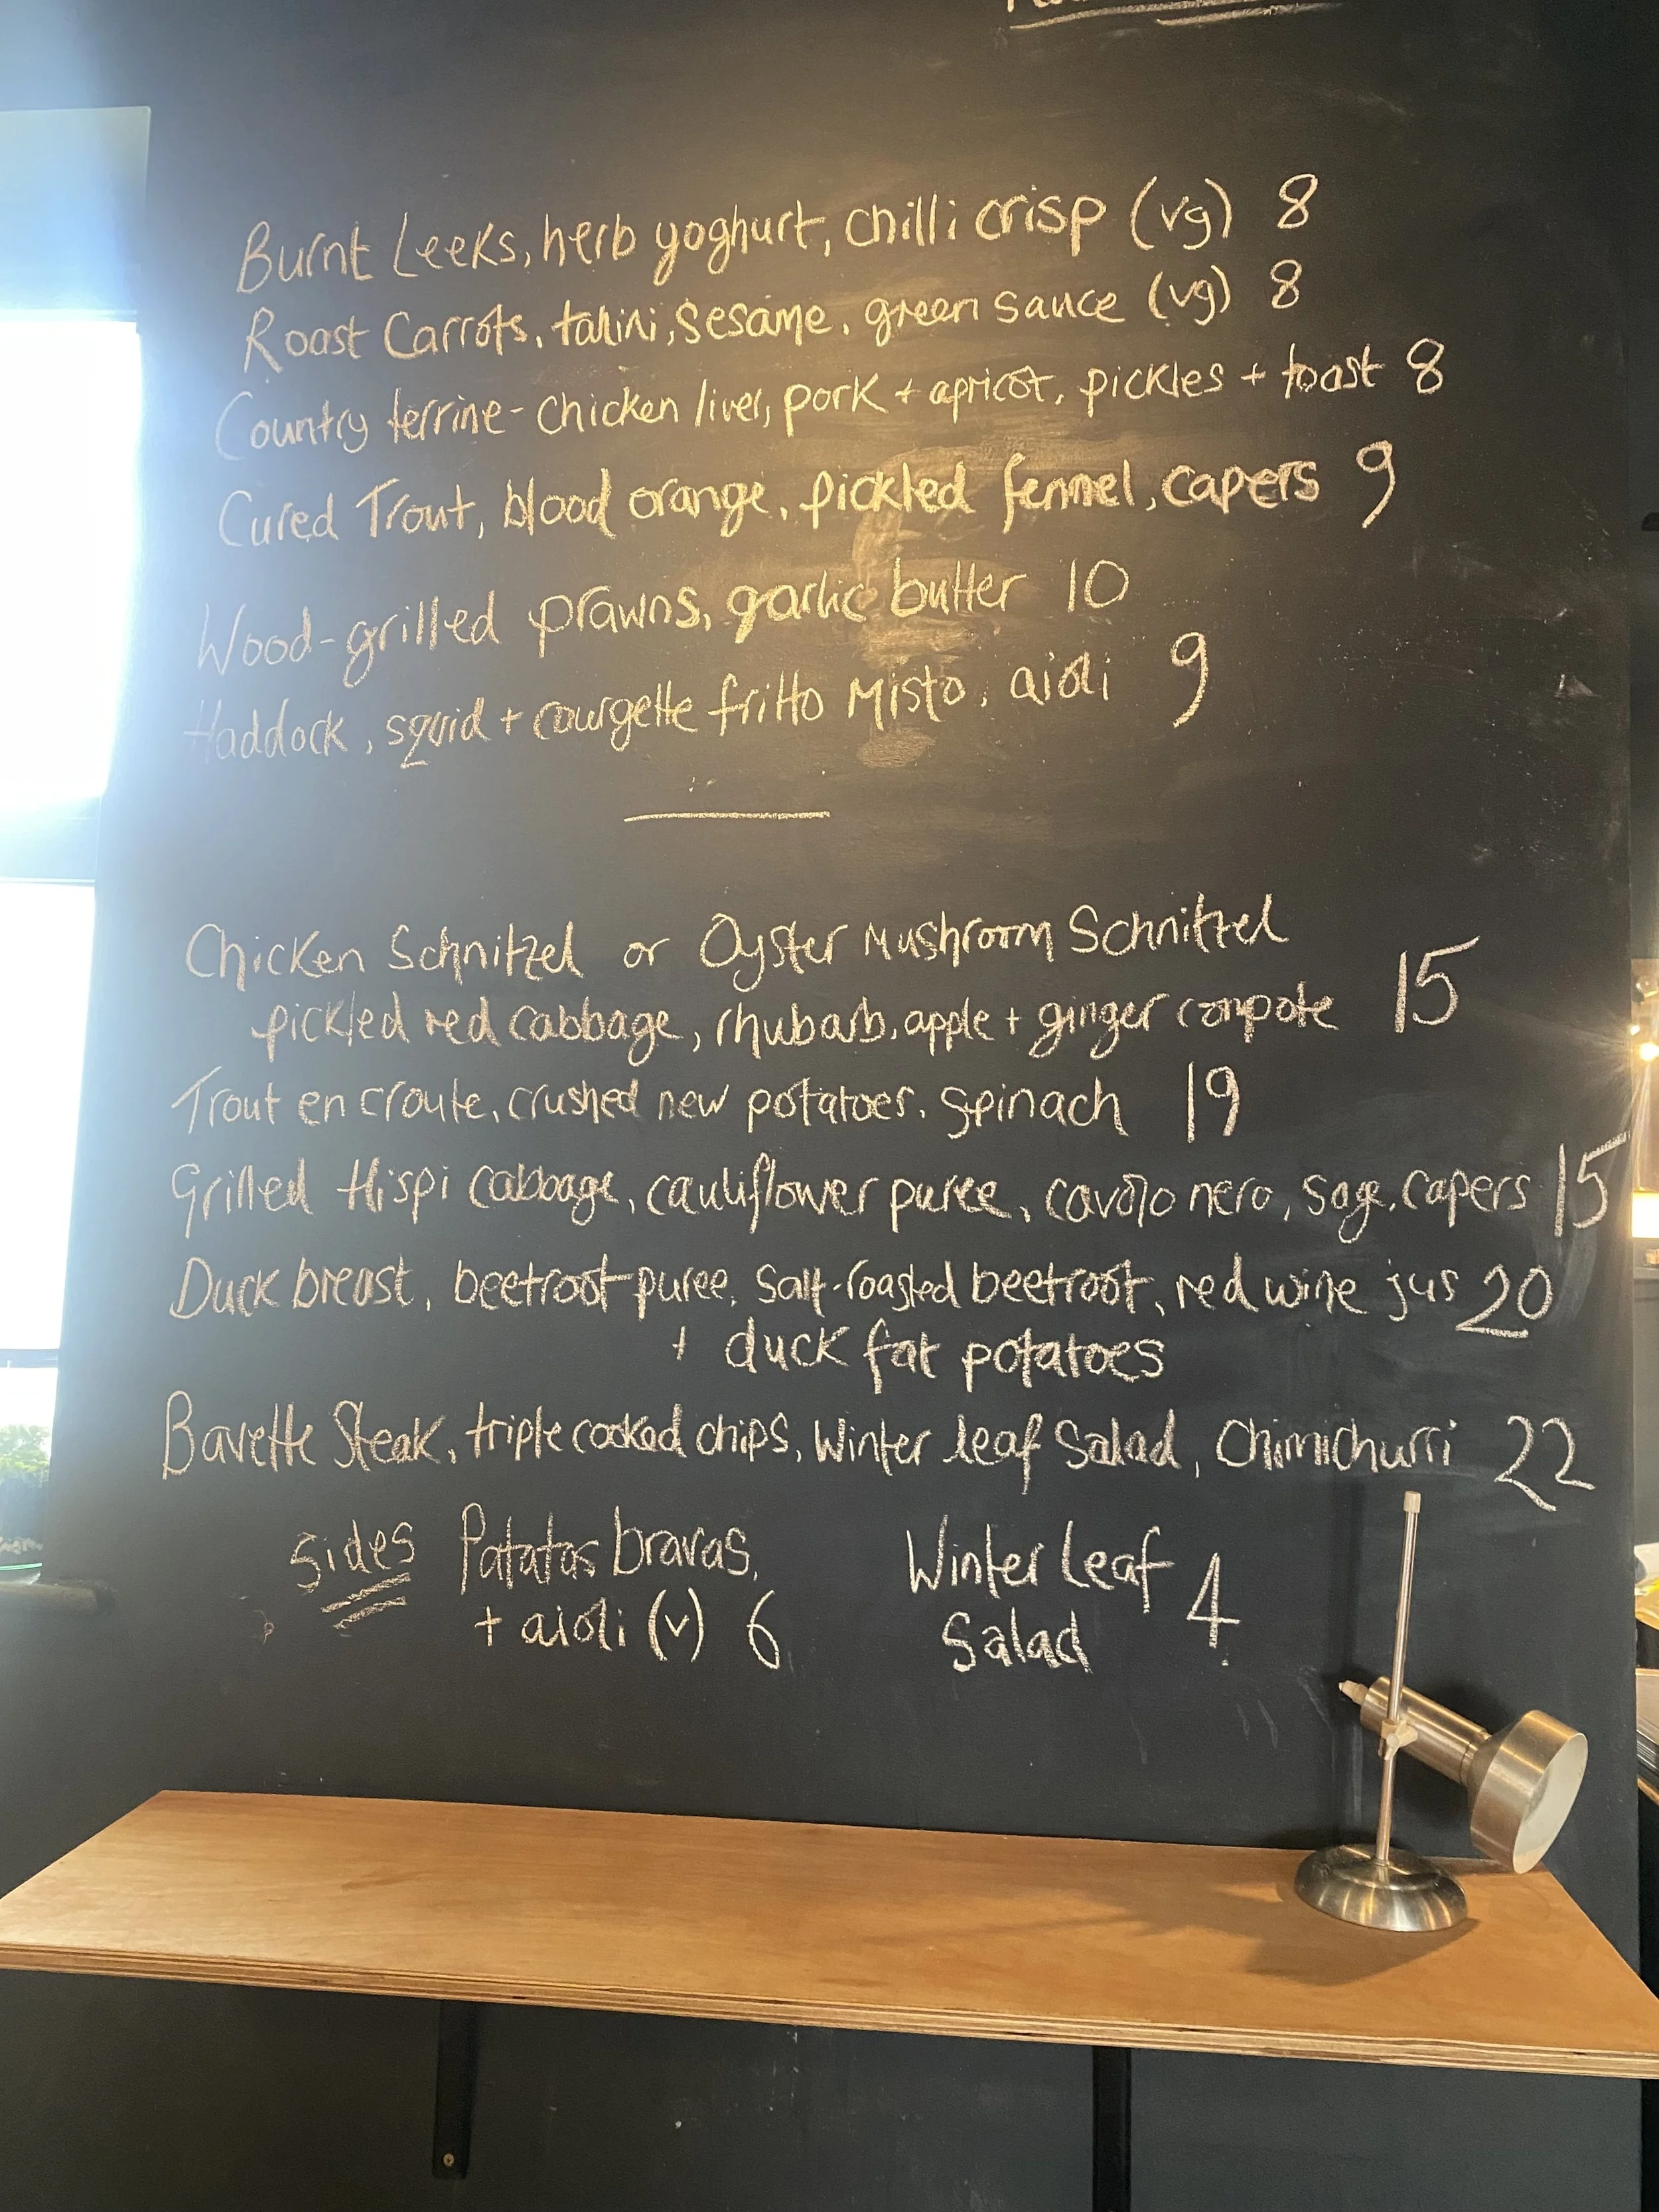 Burnt Leeks, herb yoghurt, chilli crisp (vg) 8
Roast Carrots, tahini, sesame, green sauce (vg) 8
Country terrine - chicken liver, pork + apricot, pickles + toast 8
Cured Trout, blood orange, pickled fennel, capers 9
Wood-grilled prawns, garlic butter 10
Haddock, squid + courgette fritto Misto, aioli 9
Chicken Schnitzel or Oyster Mushroom Schnitzel
pickled red cabbage, rhubarb, apple + ginger compote 15
Trout en croute, crushed new potatoes, spinach 19
Grilled Hispi Cabbage, cauliflower puree, cavolo nero, sage, capers 15
Duck breast, beetroot puree, salt-roasted beetroot, red wine jus 20
+ duck fat potatoes
Bavette Steak, triple cooked chips, Winter leaf Salad, Chimichurri 22
Sides Patatas bravas,
+ aioli (v) 6
Winter Leaf
Salad 4